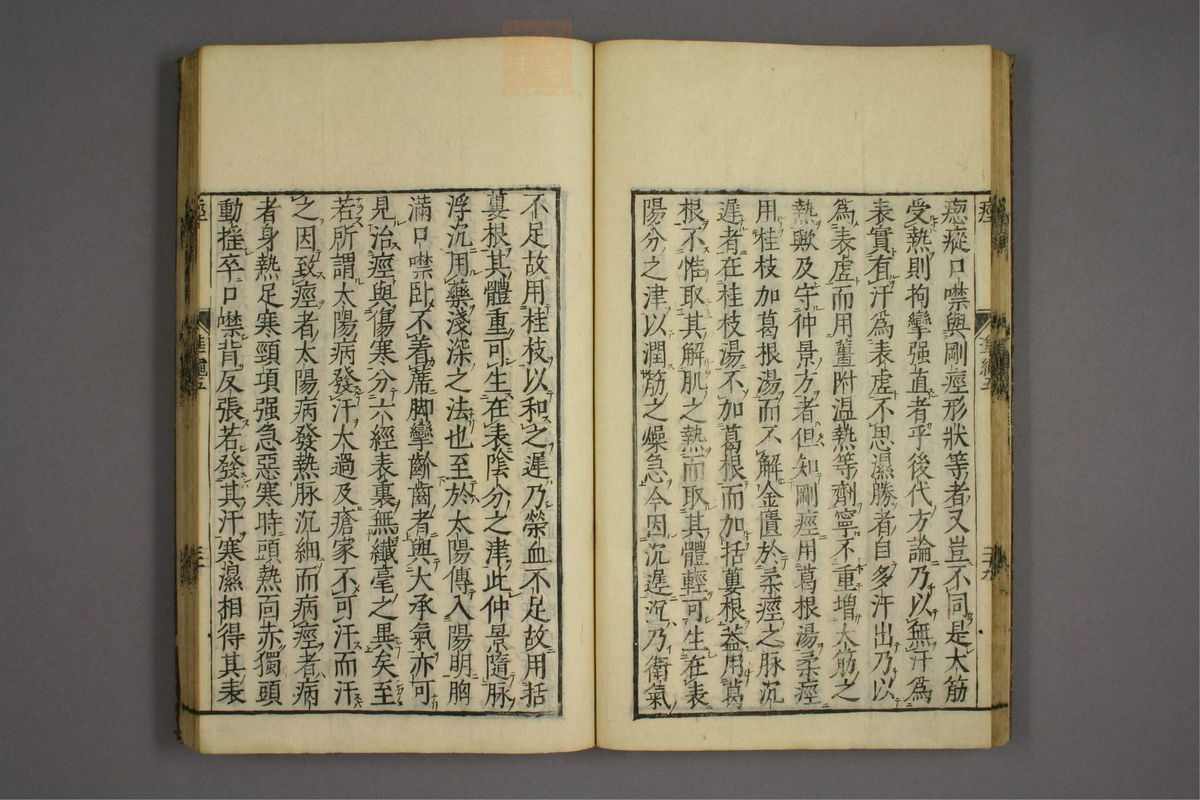 瘛瘲口噤與剛痙形狀等者又豈不同是大筋
受熱則拘攣强直者乎後代方論乃以無汗爲
表實有汗爲表虛不思濕勝者自多汗出乃以
爲表虛而用薑附温熱等劑寧不重增大筋之
熱歟及守仲景方者但知剛痙用葛根湯柔痙
用桂枝加葛根湯而不解金匱於柔痙之脉沉
遲者在桂枝湯不加葛根而加括蔞根葢用葛
根不惟取其解肌之熱而取其體輕可生在表
陽分之津以潤筋之燥急今因沉遲沉乃衛氣
不足故用桂枝以和之遲乃榮血不足故用括
蔞根其體重可生在表陰分之津此仲景隨脉
浮沉用藥淺深之法也至於太陽傳入陽明胸
滿口噤臥不着蓆脚攣齡齒者與大承氣亦可
見治痙與傷寒分六經表裏無纖毫之異矣至
若所謂太陽病發汗太過及瘡家不可汗而汗
之因致痙者太陽病發熱脉沉細而病痙者病
者身熱足寒頸項强急惡寒時頭熱面赤獨頭
動揺卒口噤背反張若發其汗寒濕相得其表
痙
準繩五
二十九
痙
準繩五
三十